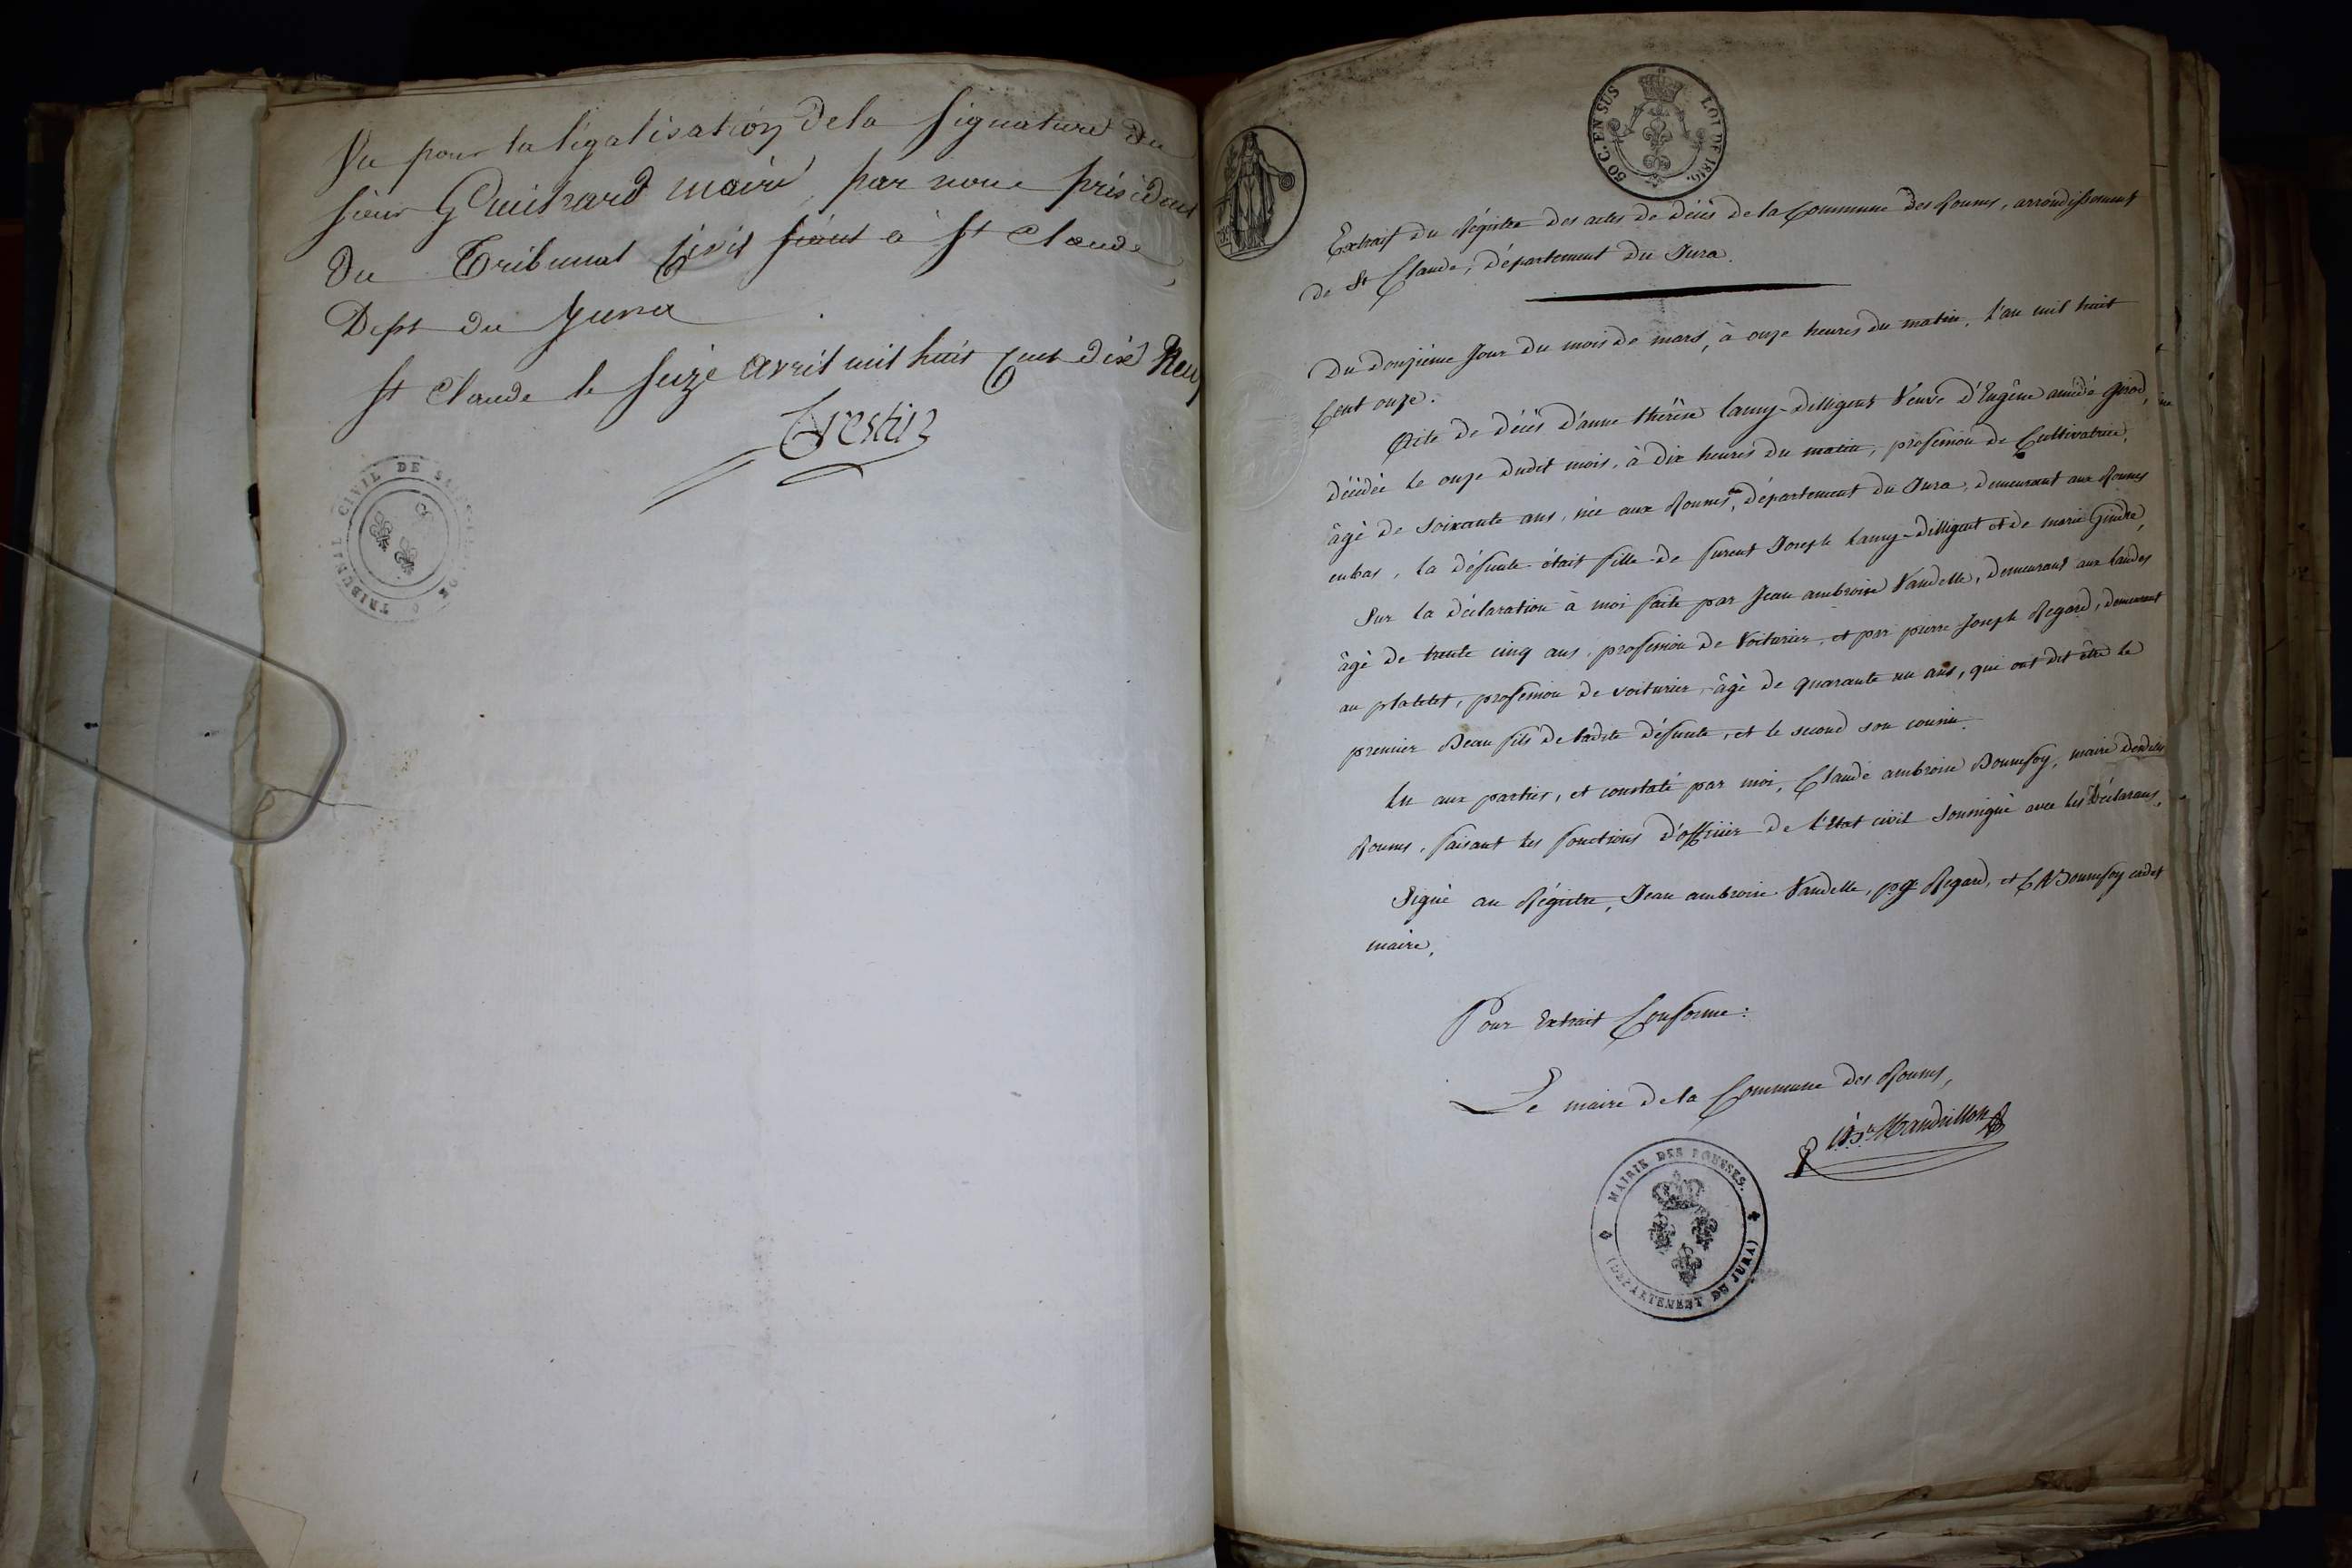 Vu pour la légalisation de la Signature du
sieur Guichard maire, par nous président
du Tribunal Civil séant à St Claude
Dept du Jura
St Claude le seize avril mil huit cent dix Neuf
Crestin
TRIBUNAL CIVIL DE
50 C. EN SUS LOI DE 1816.
Extrait du Régistre des actes de décès de la Commune des Rousses, arrondissement
de St Claude, département du Jura.
Du douzième Jour du mois de mars, à onze heures du matin, l'an mil huit
Cent onze.
Acte de décès d'anne thérèse Lamy-dilligent Veuve d'Eugène amédé Girod,
décédée le onze dudit mois, à dix heures du matin, profession de Cultivatrice,
âgé de soixante ans, née aux Rousses, département du Jura, demeurant aux Rousses
en bas, la défunte était fille de furent Joseph Lamy-dilligent et de marie Gindre,
Sur la déclaration à moi faite par Jean ambroise Vandelle, demeurant aux landes
âgé de trente cinq ans, profession de Voiturier, et par pierre Joseph Regard, demeurant
au platelet, profession de voiturier, âgé de quarante un ans, qui ont dit être le
premier Beau fils de ladite défunte, et le second son cousin.
Lu aux parties, et constaté par moi, Claude ambroise Bonnefoy, maire desdites
Rousses, faisant les fonctions d'officier de l'Etat civil Soussigné avec les Déclarans,
Signé au Régistre, Jean ambroise Vandelle, pj Regard, et CA Bonnefoy cadet
maire,
Pour Extrait Conforme:
Le maire de la Commune des Rousses,
Mandrillon
MAIRIE DES ROUSSES.
(DEPARTEMENT DU JURA)